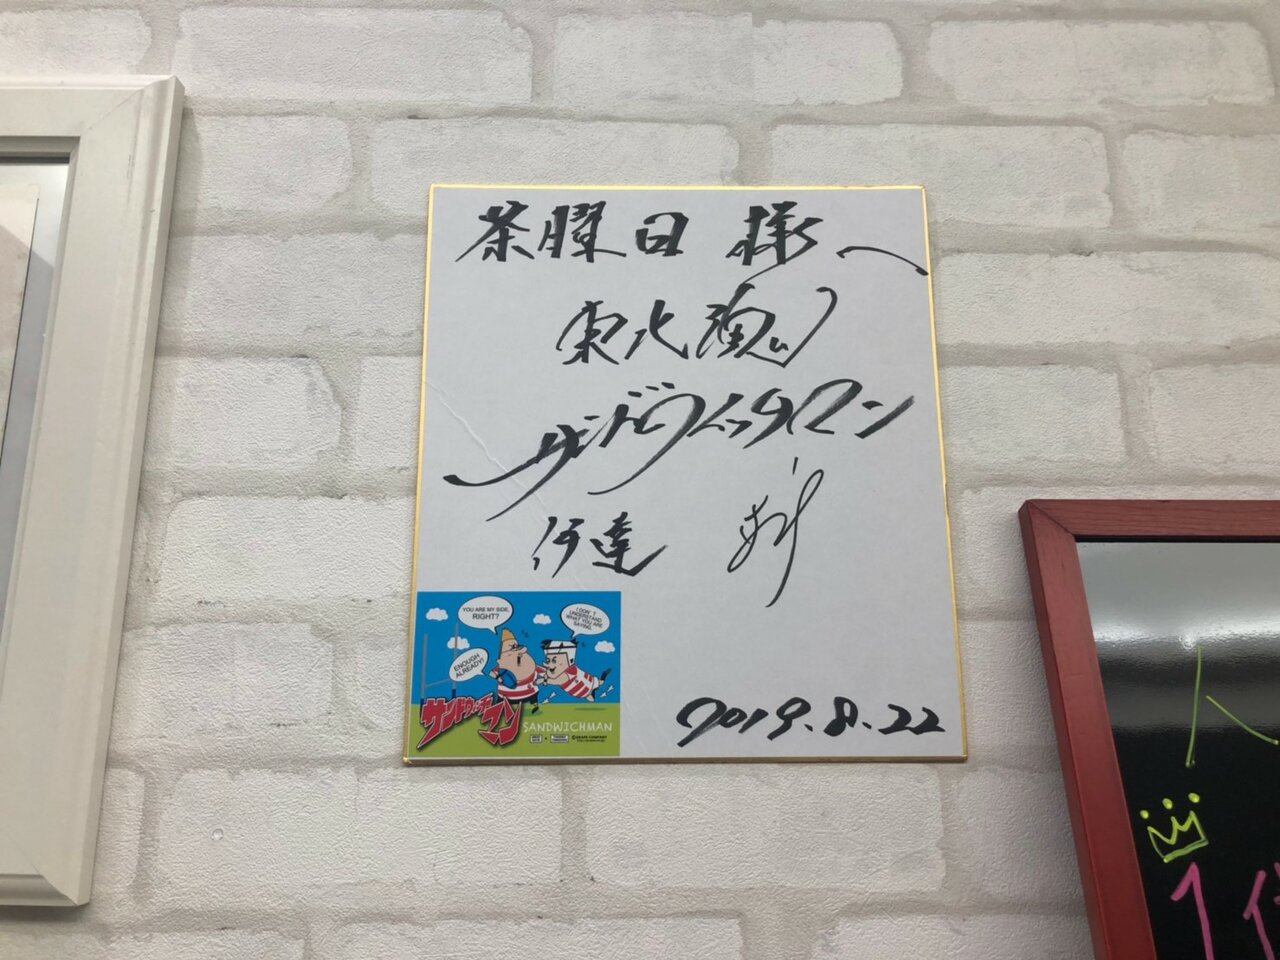 茶曜日 様へ
東北魂
サンドウィッチマン
伊達
YOU ARE MY SIDE,
RIGHT?
I DON'T
UNDERSTAND
WHAT YOU ARE
SAYING.
ENOUGH
ALREADY!
サンドウィッチマン
SANDWICHMAN
2019.8.22
1